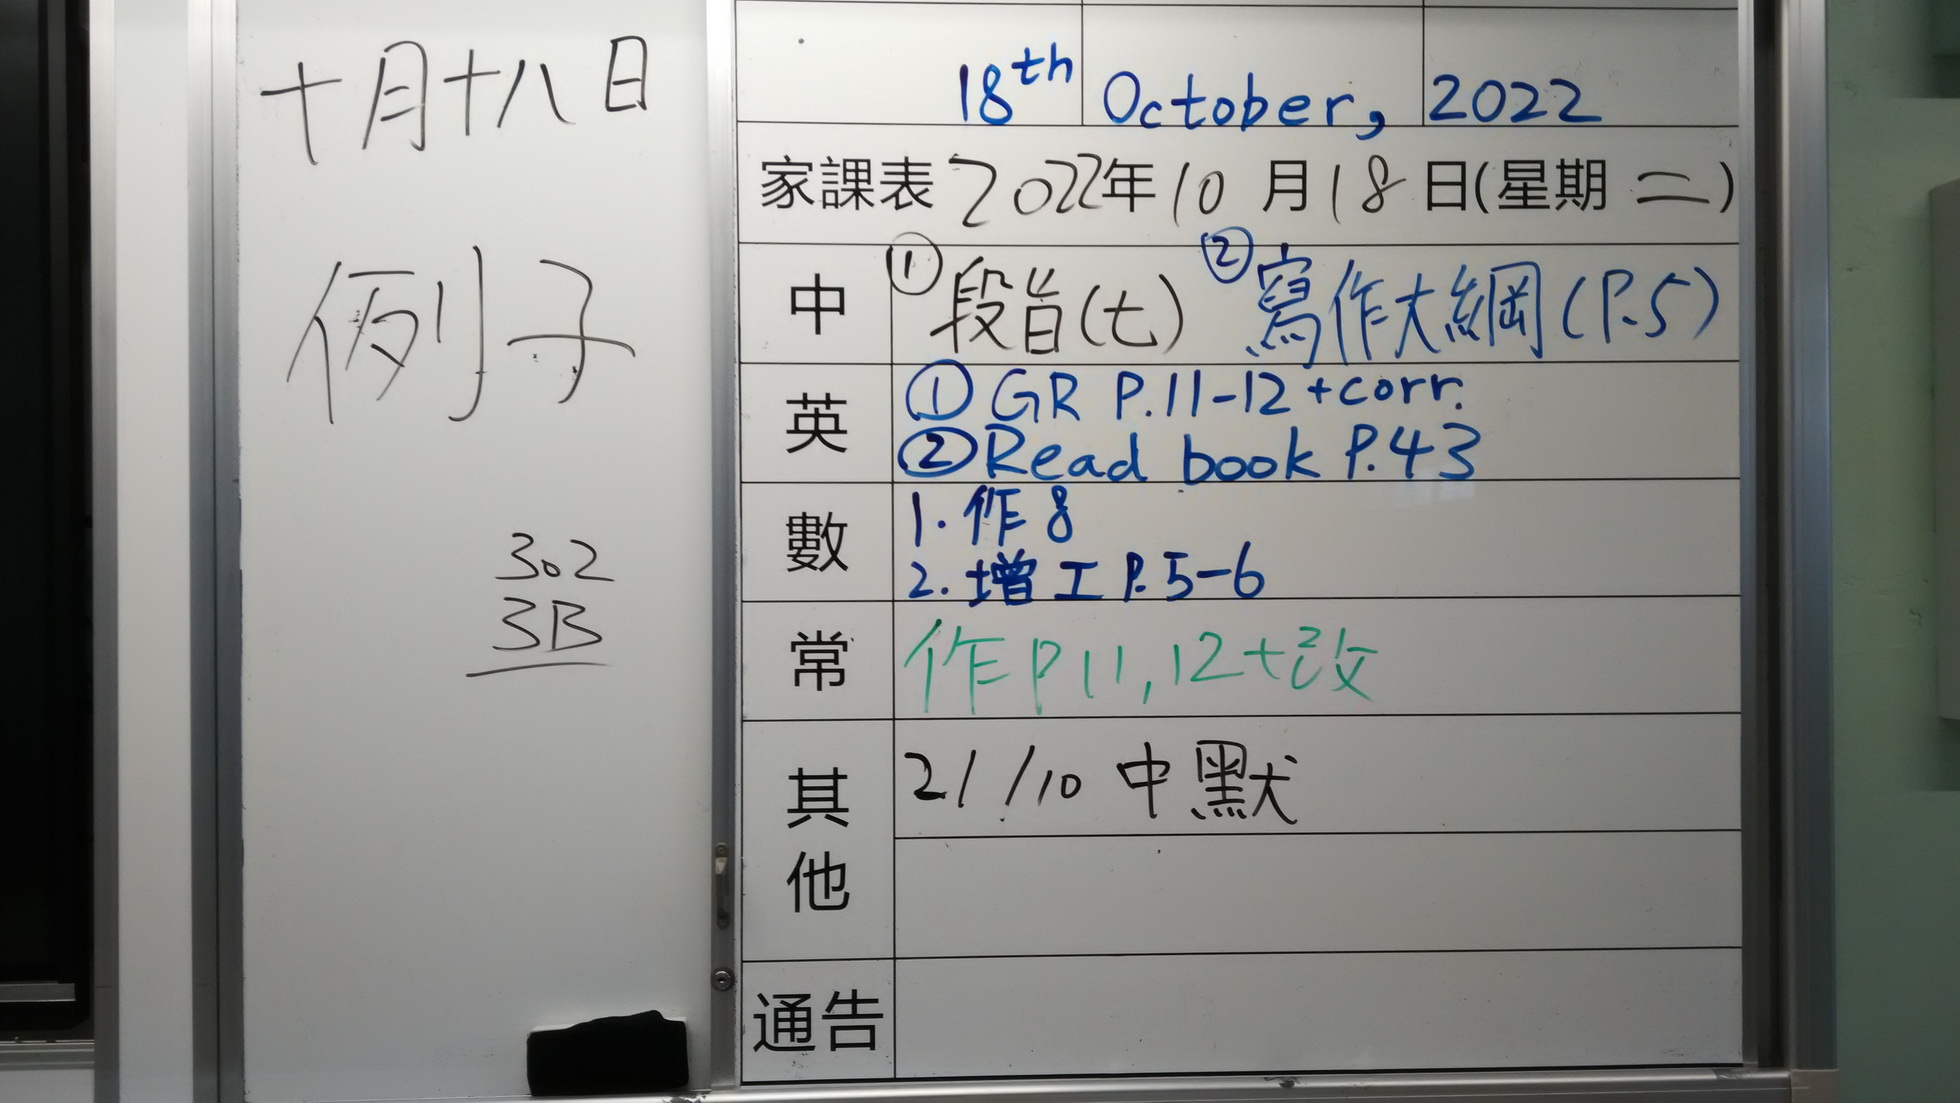 十月十八日
例子
302
3B
18th October, 2022
家課表 2022年10月18日(星期二)
中 ① 段旨(七) ② 寫作大綱(P.5)
英 ① GR P.11-12 +corr.
② Read book P.43
數 1. 作8
2. 增工 P.5-6
常 作P11,12+改
其他 21/10 中默
通告